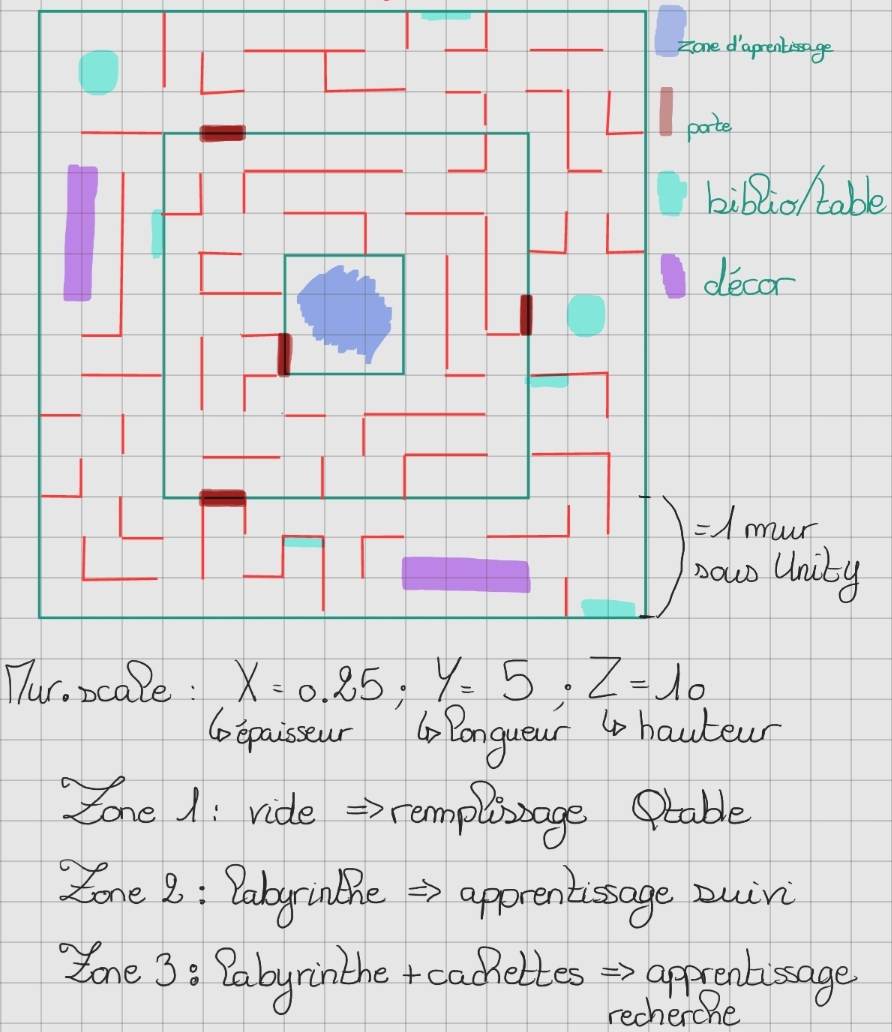 zone d'aprentissage
porte
biblio/table
décor
=1 mur
sous Unity
Mur.scale : X = 0.25 ; Y = 5 ; Z = 10
↳épaisseur ↳longueur ↳ hauteur
Zone 1 : vide => remplissage Qtable
Zone 2 : labyrinthe => apprentissage suivi
Zone 3 : labyrinthe + cachettes => apprentissage
recherche